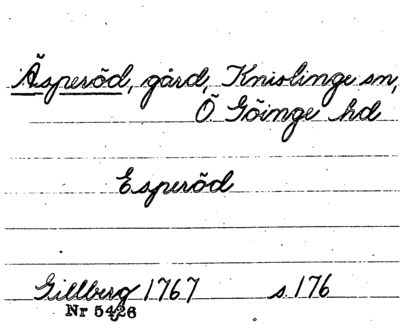 Äsperöd, gård, Knislinge sn,
Ö Göinge hd
Esperöd
Gillberg 1767 s. 176
Nr 5426